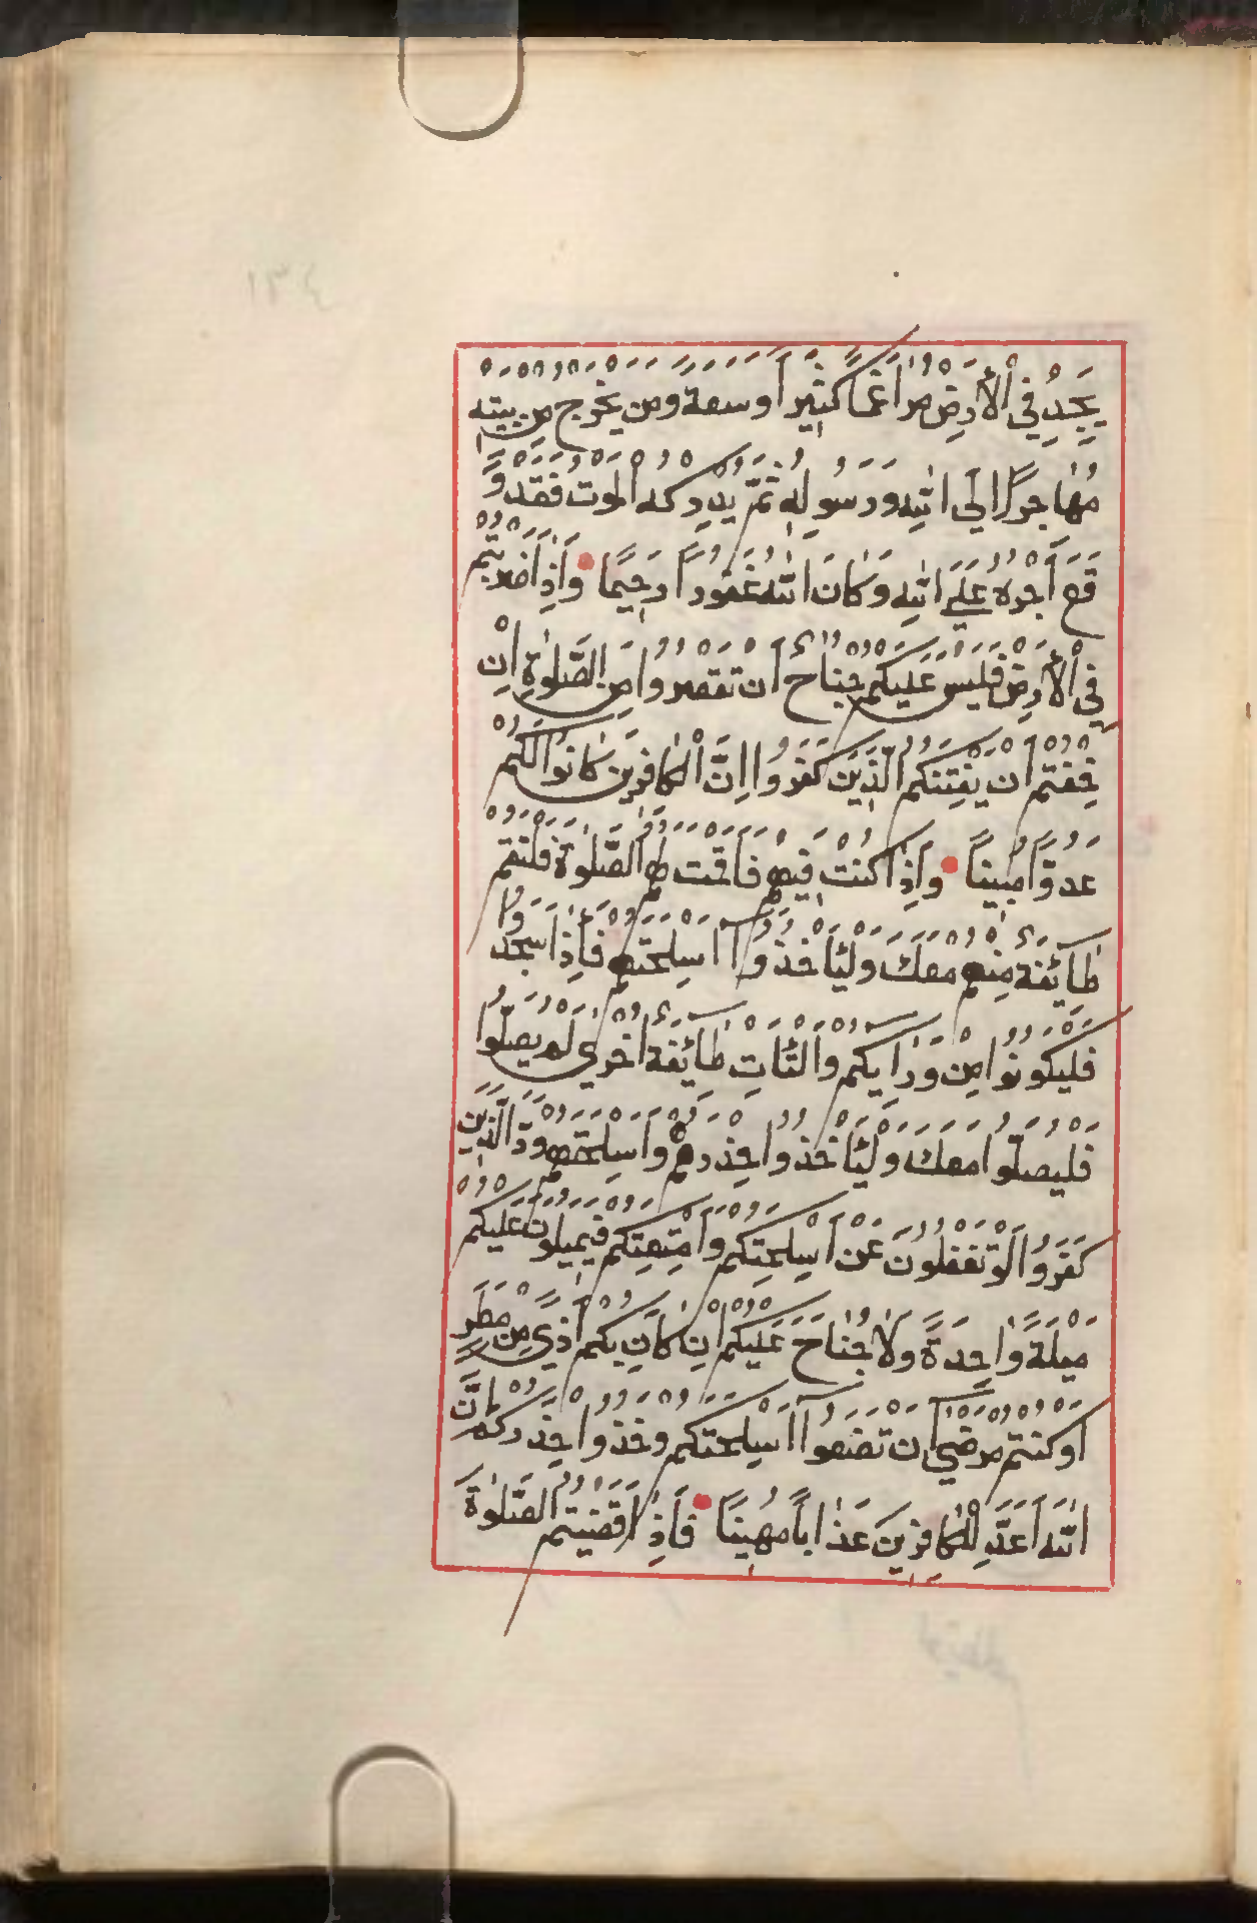 يَجِدْ فِي الْأَرْضِ مُرَاغَمًا كَثِيرًا وَسَعَةً وَمَنْ يَخْرُجْ مِنْ بَيْتِهِ
مُهَاجِرًا إِلَى اللهِ وَرَسُولِهِ ثُمَّ يُدْرِكْهُ الْمَوْتُ فَقَدْ وَ
قَعَ أَجْرُهُ عَلَى اللهِ وَكَانَ اللهُ غَفُورًا رَحِيمًا وَإِذَا ضَرَبْتُمْ
فِي الْأَرْضِ فَلَيْسَ عَلَيْكُمْ جُنَاحٌ أَنْ تَقْصُرُوا مِنَ الصَّلٰوةِ إِنْ
خِفْتُمْ أَنْ يَفْتِنَكُمُ الَّذِينَ كَفَرُوا إِنَّ الْكَافِرِينَ كَانُوا لَكُمْ
عَدُوًّا مُبِينًا وَإِذَا كُنْتَ فِيهِمْ فَأَقَمْتَ لَهُمُ الصَّلٰوةَ فَلْتَقُمْ
طَآئِفَةٌ مِنْهُمْ مَعَكَ وَلْيَأْخُذُوآ أَسْلِحَتَهُمْ فَإِذَا سَجَدُوا
فَلْيَكُونُوا مِنْ وَرَآئِكُمْ وَلْتَأْتِ طَآئِفَةٌ أُخْرَى لَمْ يُصَلُّوا
فَلْيُصَلُّوا مَعَكَ وَلْيَأْخُذُوا حِذْرَهُمْ وَأَسْلِحَتَهُمْ وَدَّ الَّذِينَ
كَفَرُوا لَوْ تَغْفُلُونَ عَنْ أَسْلِحَتِكُمْ وَأَمْتِعَتِكُمْ فَيَمِيلُونَ عَلَيْكُمْ
مَيْلَةً وَاحِدَةً وَلَا جُنَاحَ عَلَيْكُمْ إِنْ كَانَ بِكُمْ أَذًى مِنْ مَطَرٍ
أَوْ كُنْتُمْ مَرْضَىٰ أَنْ تَضَعُوآ أَسْلِحَتَكُمْ وَخُذُوا حِذْرَكُمْ إِنَّ
اللهَ أَعَدَّ لِلْكَافِرِينَ عَذَابًا مُهِينًا فَإِذَا قَضَيْتُمُ الصَّلٰوةَ